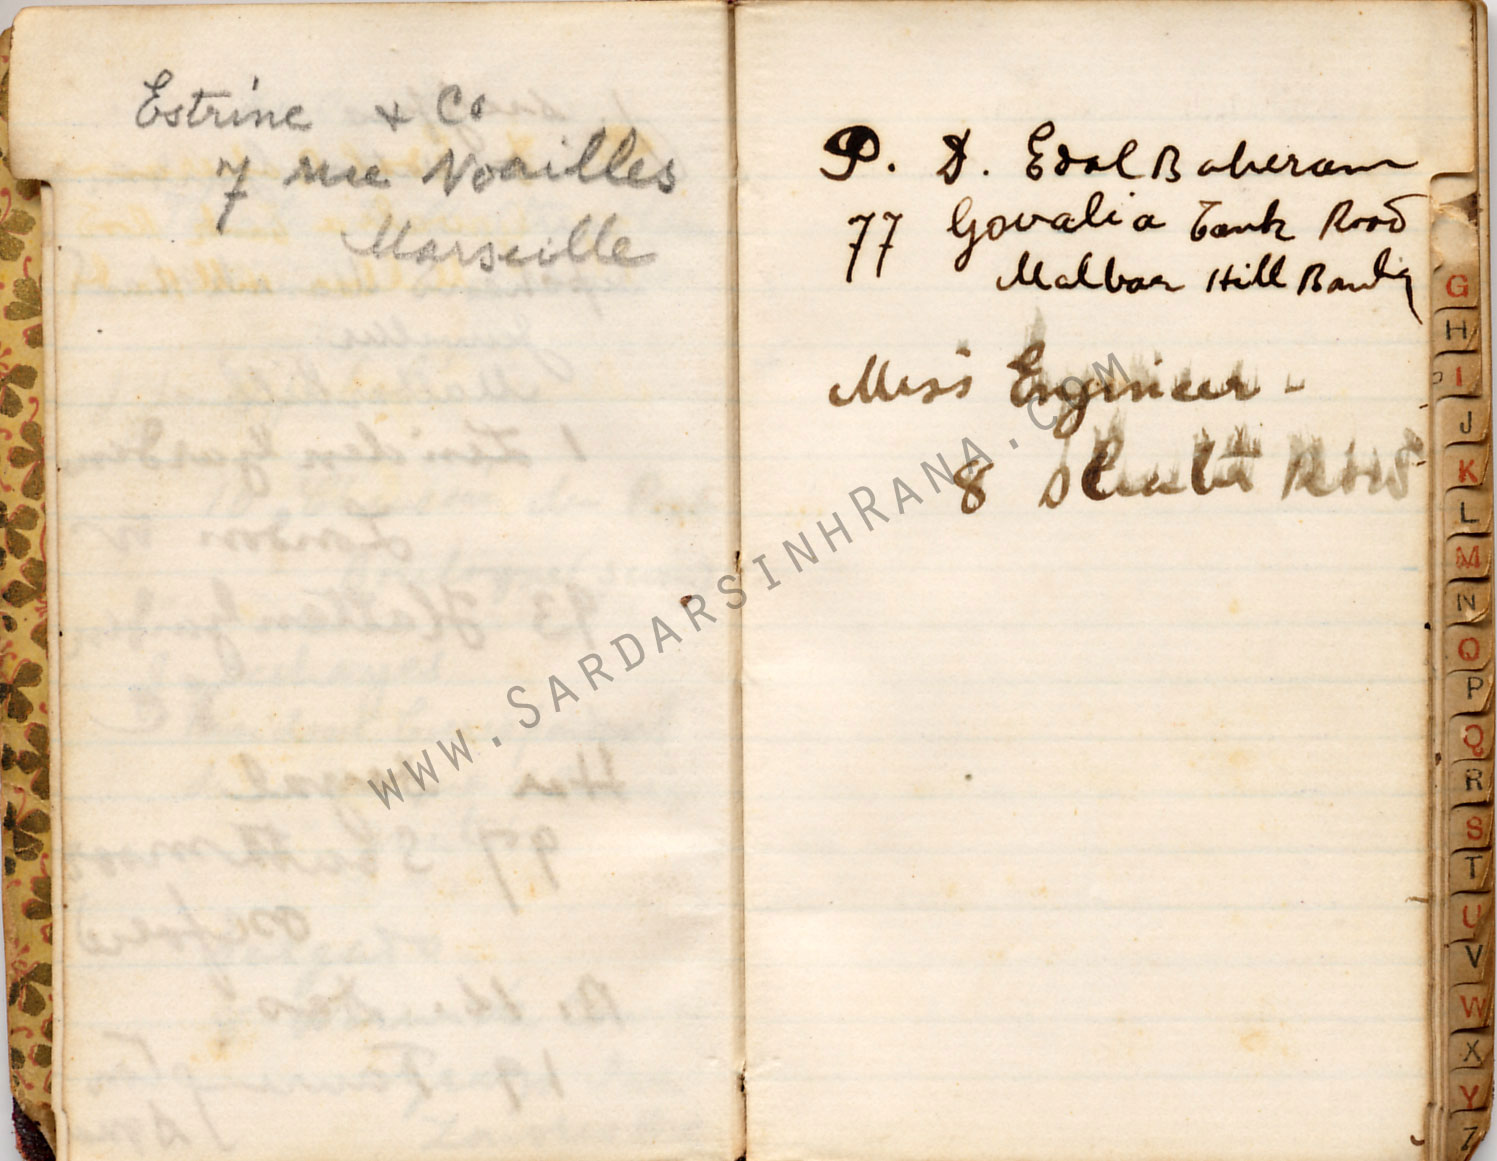 Estrine & Co
7 rue Noailles
Marseille
P. D. Edal Baheram
77 Govalia Tank Road
Malbaar Hill
Miss Engineer -
8
G
H
I
J
K
L
M
N
O
P
Q
R
S
T
U
V
W
X
Y
Z
www.SardarsinhRana.com